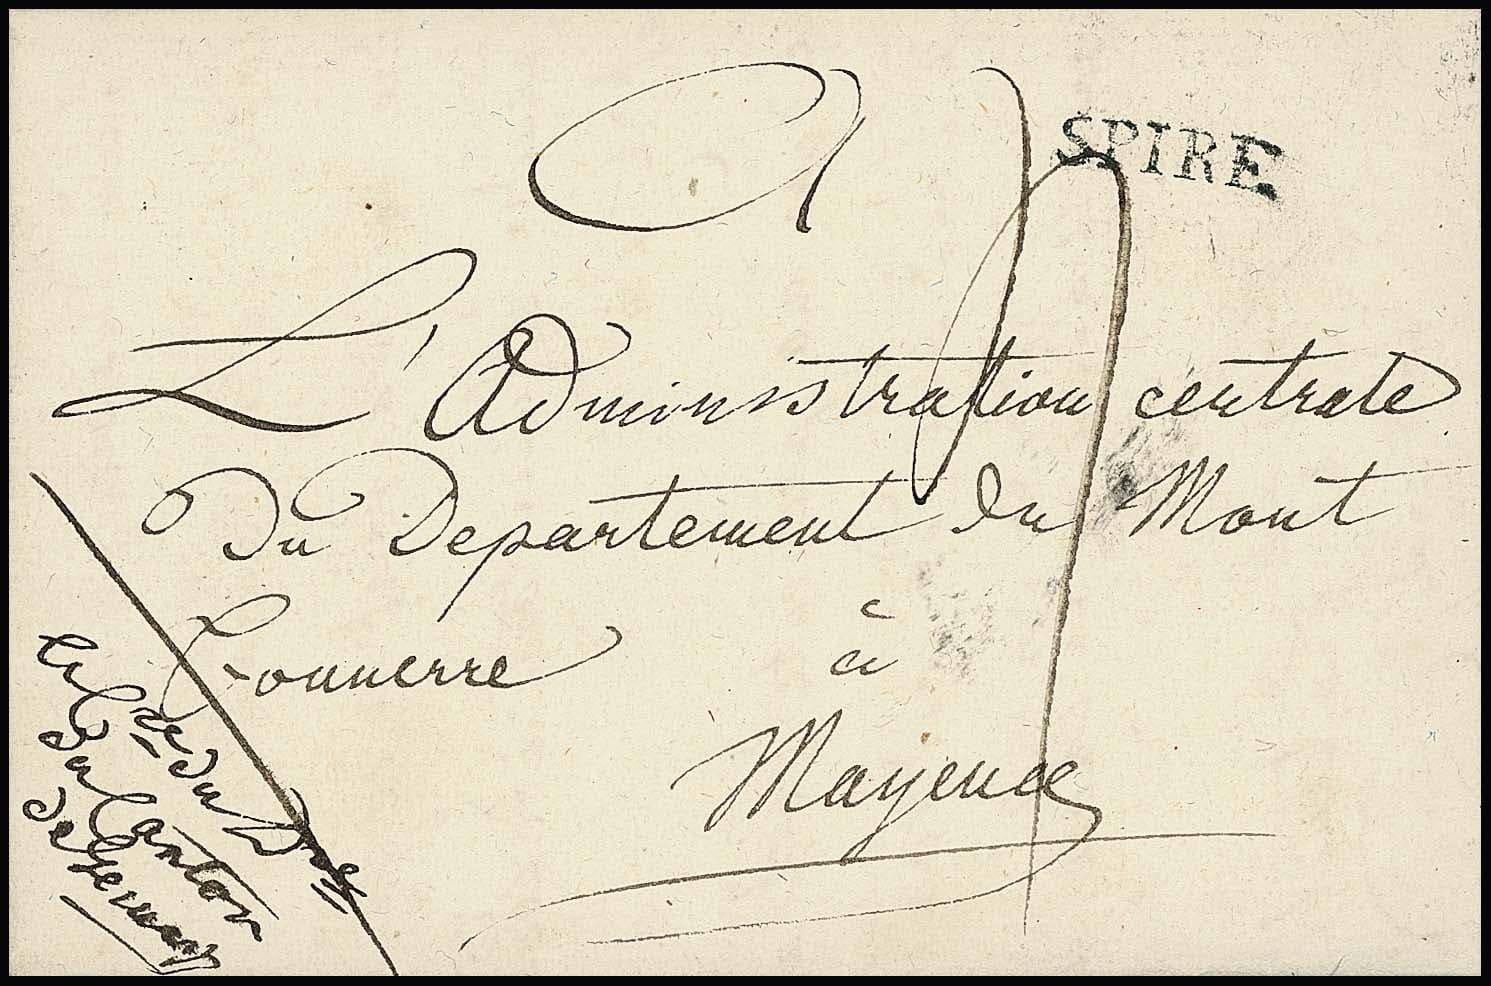 A
SPIRE
L'Administration centrale
Du Departement du Mont
Tonnerre à
Mayence
le C.re du Dre.
du Canton
de Germ